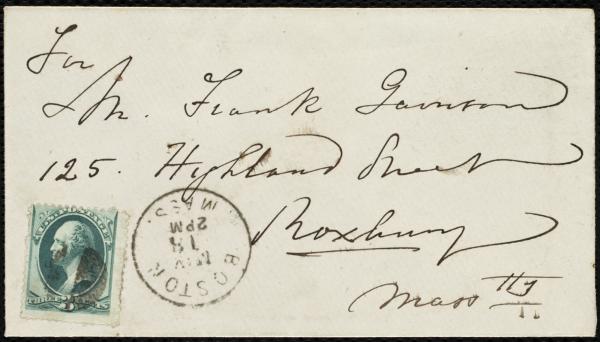 For
Mr. Frank Garrison
125. Highland Street
Roxbury
Mass
BOSTON MASS.
18
2PM
THREE CENTS